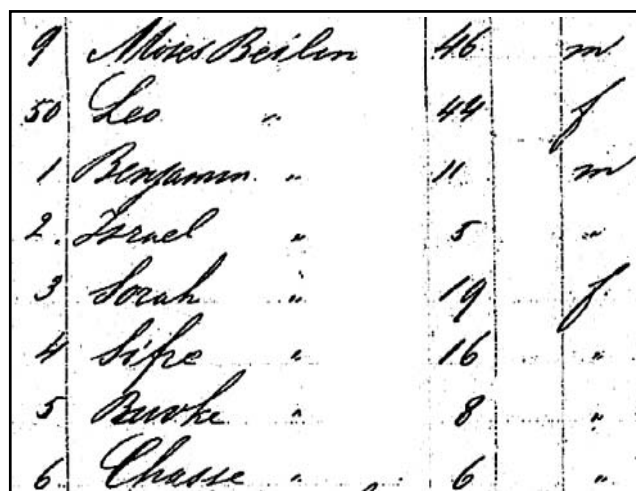 9 Moses Beilin 46 m
50 Leo " 44 f
1 Benjamin " 11 m
2. Israel " 5 "
3 Sorah " 19 f
4 Sifre " 16 "
5 " 8 "
6 Chasse " 6 "